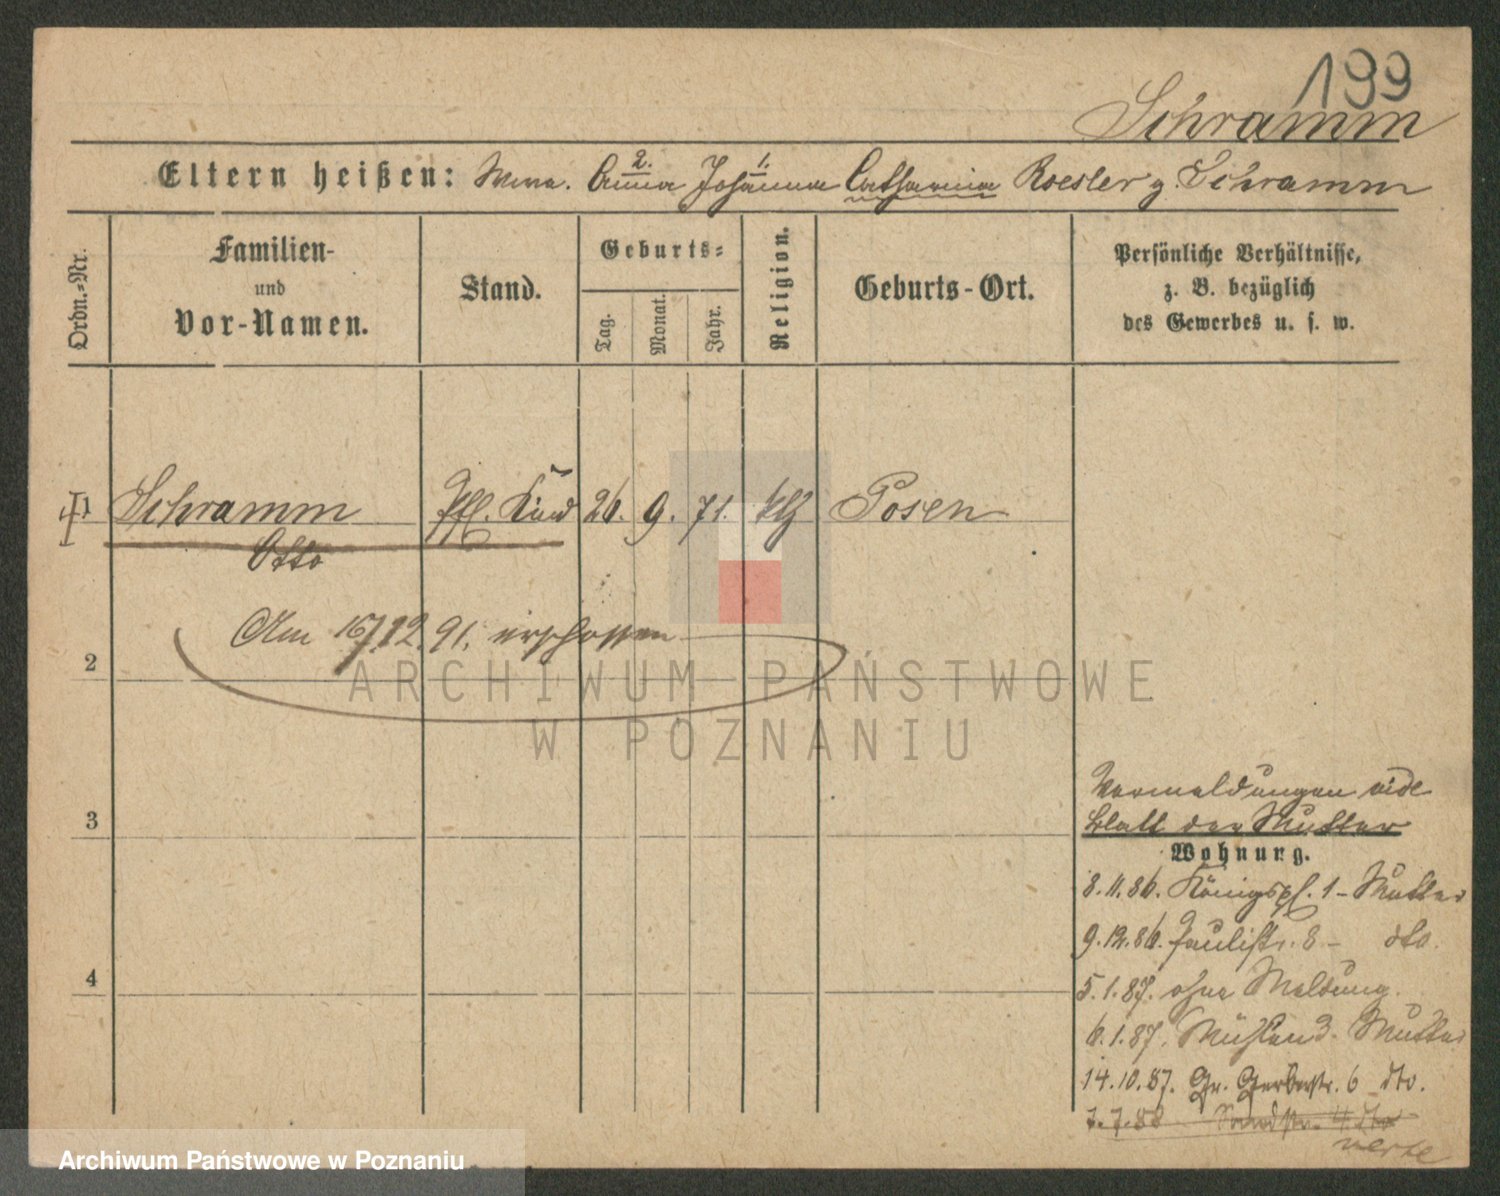 199
Schramm
Eltern heißen: Wwe. Anna Johanna Catharina Roesler g. Schramm
2. 1.
Ordn.-Nr.
Familien-
und
Vor-Namen.
Stand.
Geburts-
Tag.
Monat.
Jahr.
Religion.
Geburts-Ort.
Persönliche Verhältnisse,
z. B. bezüglich
des Gewerbes u. s. w.
1 Schramm Pfl. Kind 26. 9. 71. kth Posen
Otto
Am 16/12. 91. erschossen
2
3
4
Vermeldungen vide
Blatt der Mutter
Wohnung.
8.11.86. Königspl. 1 - Mutter
9.12.86. Paulistr. 8 - dto.
5.1.87. ohne Meldung.
6.1.87. Mühlen 3. Mutter
14.10.87. Gr. Gerberstr. 6 dto.
7.7.88 Sandstr. 4 dto
verte
ARCHIWUM PAŃSTWOWE
W POZNANIU
Archiwum Państwowe w Poznaniu